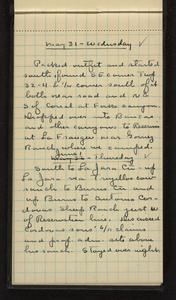 May 31 - Wednesday
Packed outfit and started
south, found SE corner Twp
32-4 & 1/4 corner south of it
both near road and N.E.
of Corral at Forks canyon.
Dropped over into
and this canyon to Burns
at La Franger near Gomez
Ranch where we camped.
June 1
Thursday
South to La Jara Cr. - up
La Jara via Trujillo cow
ranch to Burns Cr and
up Burns to Antonio Cor-
dovas Sheep Ranch just W
of Reservation line. Discussed
Cordovas sons' 6/11 claims
and prof. adm. site above
his ranch. Stayed over night.